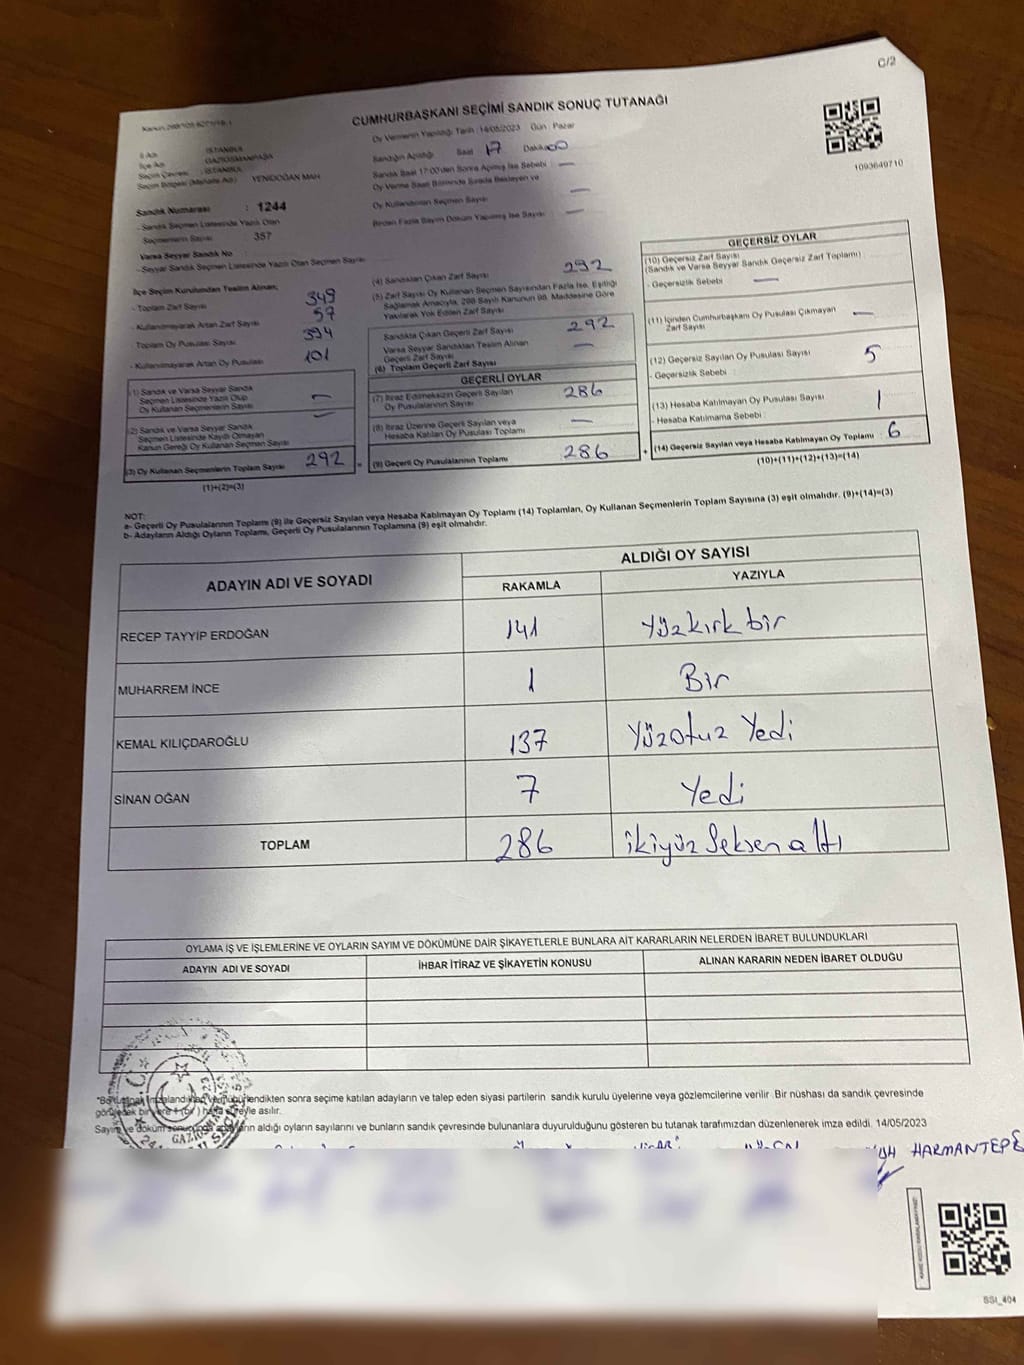 C/2
CUMHURBAŞKANI SEÇİMİ SANDIK SONUÇ TUTANAĞI
Oy Vermenin Yapıldığı Tarih : 14/05/2023 Gün : Pazar
İl Adı : İSTANBUL
İlçe Adı : GAZİOSMANPAŞA
Seçim Çevresi : İSTANBUL
Seçim Bölgesi (Mahalle Adı) : YENİDOĞAN MAH
Sandığın Açıldığı Saat 17 Dakika 00
Sandık Saat 17:00'den Sonra Açılmış İse Sebebi : —
Oy Verme Saati Bitiminde Sırada Bekleyen ve
Oy Kullandırılan Seçmen Sayısı —
Birden Fazla Sayım Döküm Yapılmış İse Sayısı —
1093649710
Sandık Numarası : 1244
- Sandık Seçmen Listesinde Yazılı Olan
Seçmenlerin Sayısı : 357
Varsa Seyyar Sandık No :
- Seyyar Sandık Seçmen Listesinde Yazılı Olan Seçmen Sayısı
İlçe Seçim Kurulundan Teslim Alınan;
- Toplam Zarf Sayısı 349
- Kullanılmayarak Artan Zarf Sayısı 57
Toplam Oy Pusulası Sayısı 394
- Kullanılmayarak Artan Oy Pusulası 101
(1) Sandık ve Varsa Seyyar Sandık
Seçmen Listesinde Yazılı Olup
Oy Kullanan Seçmenlerin Sayısı —
(2) Sandık ve Varsa Seyyar Sandık
Seçmen Listesinde Kaydı Olmayan
Kanun Gereği Oy Kullanan Seçmen Sayısı —
(3) Oy Kullanan Seçmenlerin Toplam Sayısı 292 =
(1)+(2)=(3)
(4) Sandıktan Çıkan Zarf Sayısı 292
(5) Zarf Sayısı Oy Kullanan Seçmen Sayısından Fazla ise, Eşitliği
Sağlamak Amacıyla, 298 Sayılı Kanunun 98. Maddesine Göre
Yakılarak Yok Edilen Zarf Sayısı
Sandıkta Çıkan Geçerli Zarf Sayısı 292
Varsa Seyyar Sandıktan Teslim Alınan
Geçerli Zarf Sayısı —
(6) Toplam Geçerli Zarf Sayısı
GEÇERLİ OYLAR
(7) İtiraz Edilmeksizin Geçerli Sayılan
Oy Pusulalarının Sayısı 286
(8) İtiraz Üzerine Geçerli Sayılan veya
Hesaba Katılan Oy Pusulası Toplamı —
(9) Geçerli Oy Pusulalarının Toplamı 286 +
GEÇERSİZ OYLAR
(10) Geçersiz Zarf Sayısı
(Sandık ve Varsa Seyyar Sandık Geçersiz Zarf Toplamı) :
- Geçersizlik Sebebi : —
(11) İçinden Cumhurbaşkanı Oy Pusulası Çıkmayan
Zarf Sayısı —
(12) Geçersiz Sayılan Oy Pusulası Sayısı 5
- Geçersizlik Sebebi :
(13) Hesaba Katılmayan Oy Pusulası Sayısı 1
- Hesaba Katılmama Sebebi :
(14) Geçersiz Sayılan veya Hesaba Katılmayan Oy Toplamı : 6
(10)+(11)+(12)+(13)=(14)
NOT:
a- Geçerli Oy Pusulalarının Toplamı (9) ile Geçersiz Sayılan veya Hesaba Katılmayan Oy Toplamı (14) Toplamları, Oy Kullanan Seçmenlerin Toplam Sayısına (3) eşit olmalıdır. (9)+(14)=(3)
b- Adayların Aldığı Oyların Toplamı, Geçerli Oy Pusulalarının Toplamına (9) eşit olmalıdır.
ADAYIN ADI VE SOYADI ALDIĞI OY SAYISI
RAKAMLA YAZIYLA
RECEP TAYYİP ERDOĞAN 141 Yüzkırk bir
MUHARREM İNCE 1 Bir
KEMAL KILIÇDAROĞLU 137 Yüzotuz Yedi
SİNAN OĞAN 7 Yedi
TOPLAM 286 ikiyüz Seksen altı
OYLAMA İŞ VE İŞLEMLERİNE VE OYLARIN SAYIM VE DÖKÜMÜNE DAİR ŞİKAYETLERLE BUNLARA AİT KARARLARIN NELERDEN İBARET BULUNDUKLARI
ADAYIN ADI VE SOYADI İHBAR İTİRAZ VE ŞİKAYETİN KONUSU ALINAN KARARIN NEDEN İBARET OLDUĞU
sonra seçime katılan adayların ve talep eden siyasi partilerin sandık kurulu üyelerine veya gözlemcilerine verilir .Bir nüshası da sandık çevresinde
asılır.
aldığı oyların sayılarını ve bunların sandık çevresinde bulunanlara duyurulduğunu gösteren bu tutanak tarafımızdan düzenlenerek imza edildi. 14/05/2023
HARMANTEPE
SSI_404